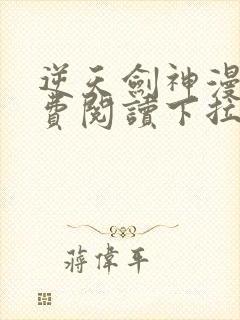 逆天劍神漫
費閱讀下拉
蔣偉平